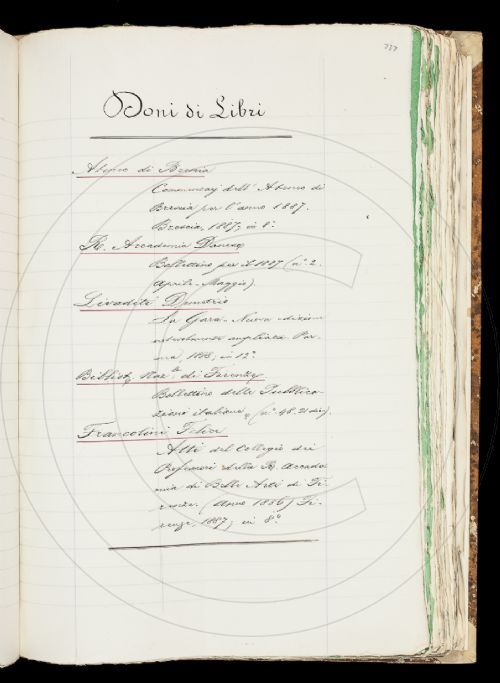 737
Doni di Libri
Ateneo di Brescia
Commentarj dell' Ateneo di
Brescia per l'anno 1887.
Brescia, 1887; in 8°
R. Accademia
Bollettino per il 1887 (n.° 2.
Aprile-Maggio).
Livaditi Demetrio
La Gara. Nuova edizione
notevolmente ampliata Par-
ma, in 12°
Bibliot.ª Naz.le di Firenze
Bollettino delle Pubblica-
zioni italiane, (n.° 48. 31 dic.).
Francolini Felice
Atti del Collegio dei
Professori della R. Accade-
mia di Belle Arti di Fi-
renze. (Anno 1886) Fi-
renze, 1887; in 8°